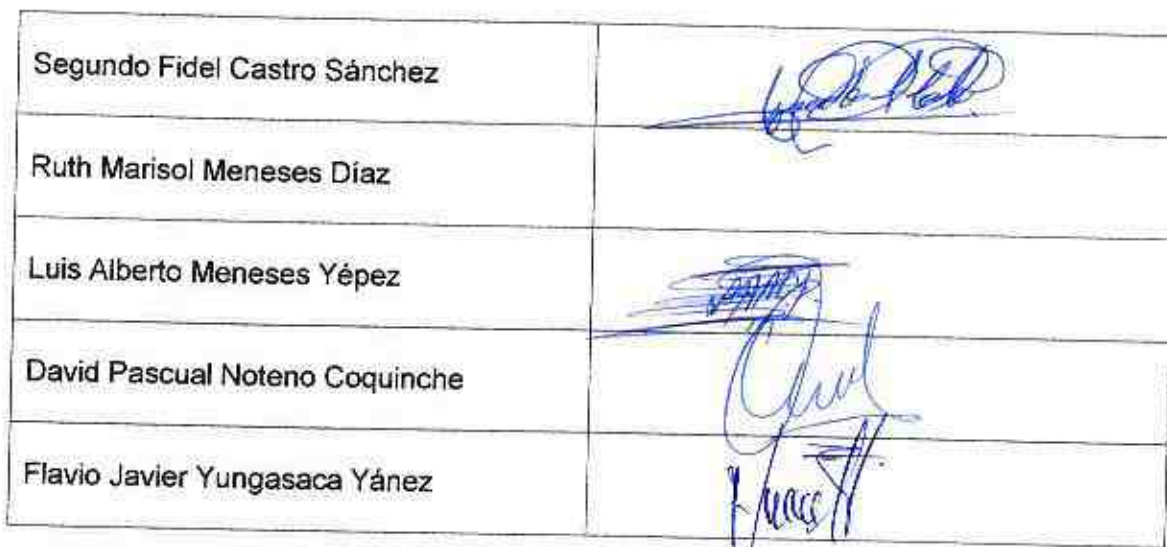 Segundo Fidel Castro Sánchez
Ruth Marisol Meneses Díaz
Luis Alberto Meneses Yépez
David Pascual Noteno Coquinche
Flavio Javier Yungasaca Yánez